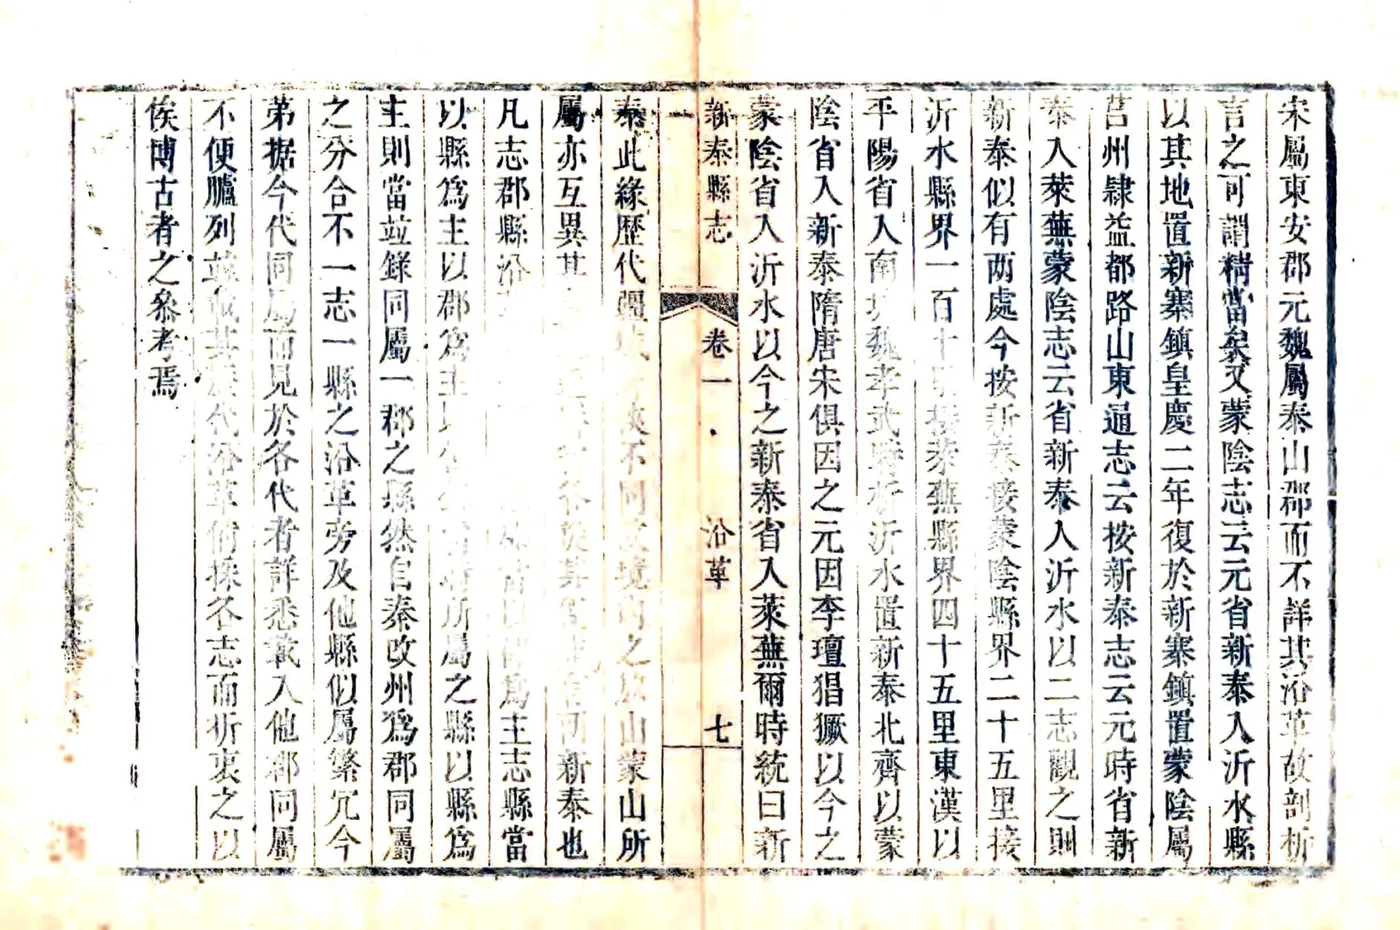 宋屬東安郡元魏屬泰山郡而不詳其沿革故剖析
言之可謂精當矣又蒙陰志云元省新泰入沂水縣
以其地置新寨鎮皇慶二年復於新寨鎮置蒙陰屬
莒州隷益都路山東通志云按新泰志云元時省新
泰入萊蕪蒙陰志云省新泰入沂水以二志觀之則
新泰似有两處今按新泰接蒙陰縣界二十五里接
沂水縣界一百十里接萊蕪縣界四十五里東漢以
平陽省入南城魏孝武時析沂水置新泰北齊以蒙
陰省入新泰隋唐宋俱因之元因李璮猖獗以今之
蒙陰省入沂水以今之新泰省入萊蕪爾時統曰新
新泰縣志 卷一 沿革 七
泰此緣歷代疆不同境内之山蒙山所
屬亦互異其新泰也
凡志郡縣沿爲主志縣當
以縣爲主以郡爲主所屬之縣以縣爲
主則當竝錄同屬一郡之縣然自秦改州爲郡同屬
之分合不一志一縣之沿革旁及他縣似屬繁冗今
弟据今代同屬而見於各代者詳悉載入他郡同屬
不便臚列竝載其歷代沿革備採各志而折衷之以
俟博古者之叅考焉